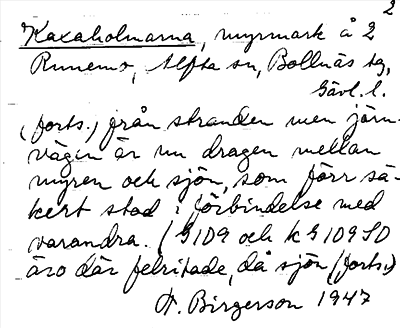 2
Kaxaholmarna, myrmark å 2
Runemo, Alfta sn, Bollnäs tg,
Gävl. l.
(forts.) från stranden men järn-
vägen är nu dragen mellan
myren och sjön, som förr sä-
kert stod i förbindelse med
varandra. (G109 och k G109SO
äro där felritade, då sjön (forts.)
H. Birgerson 1947